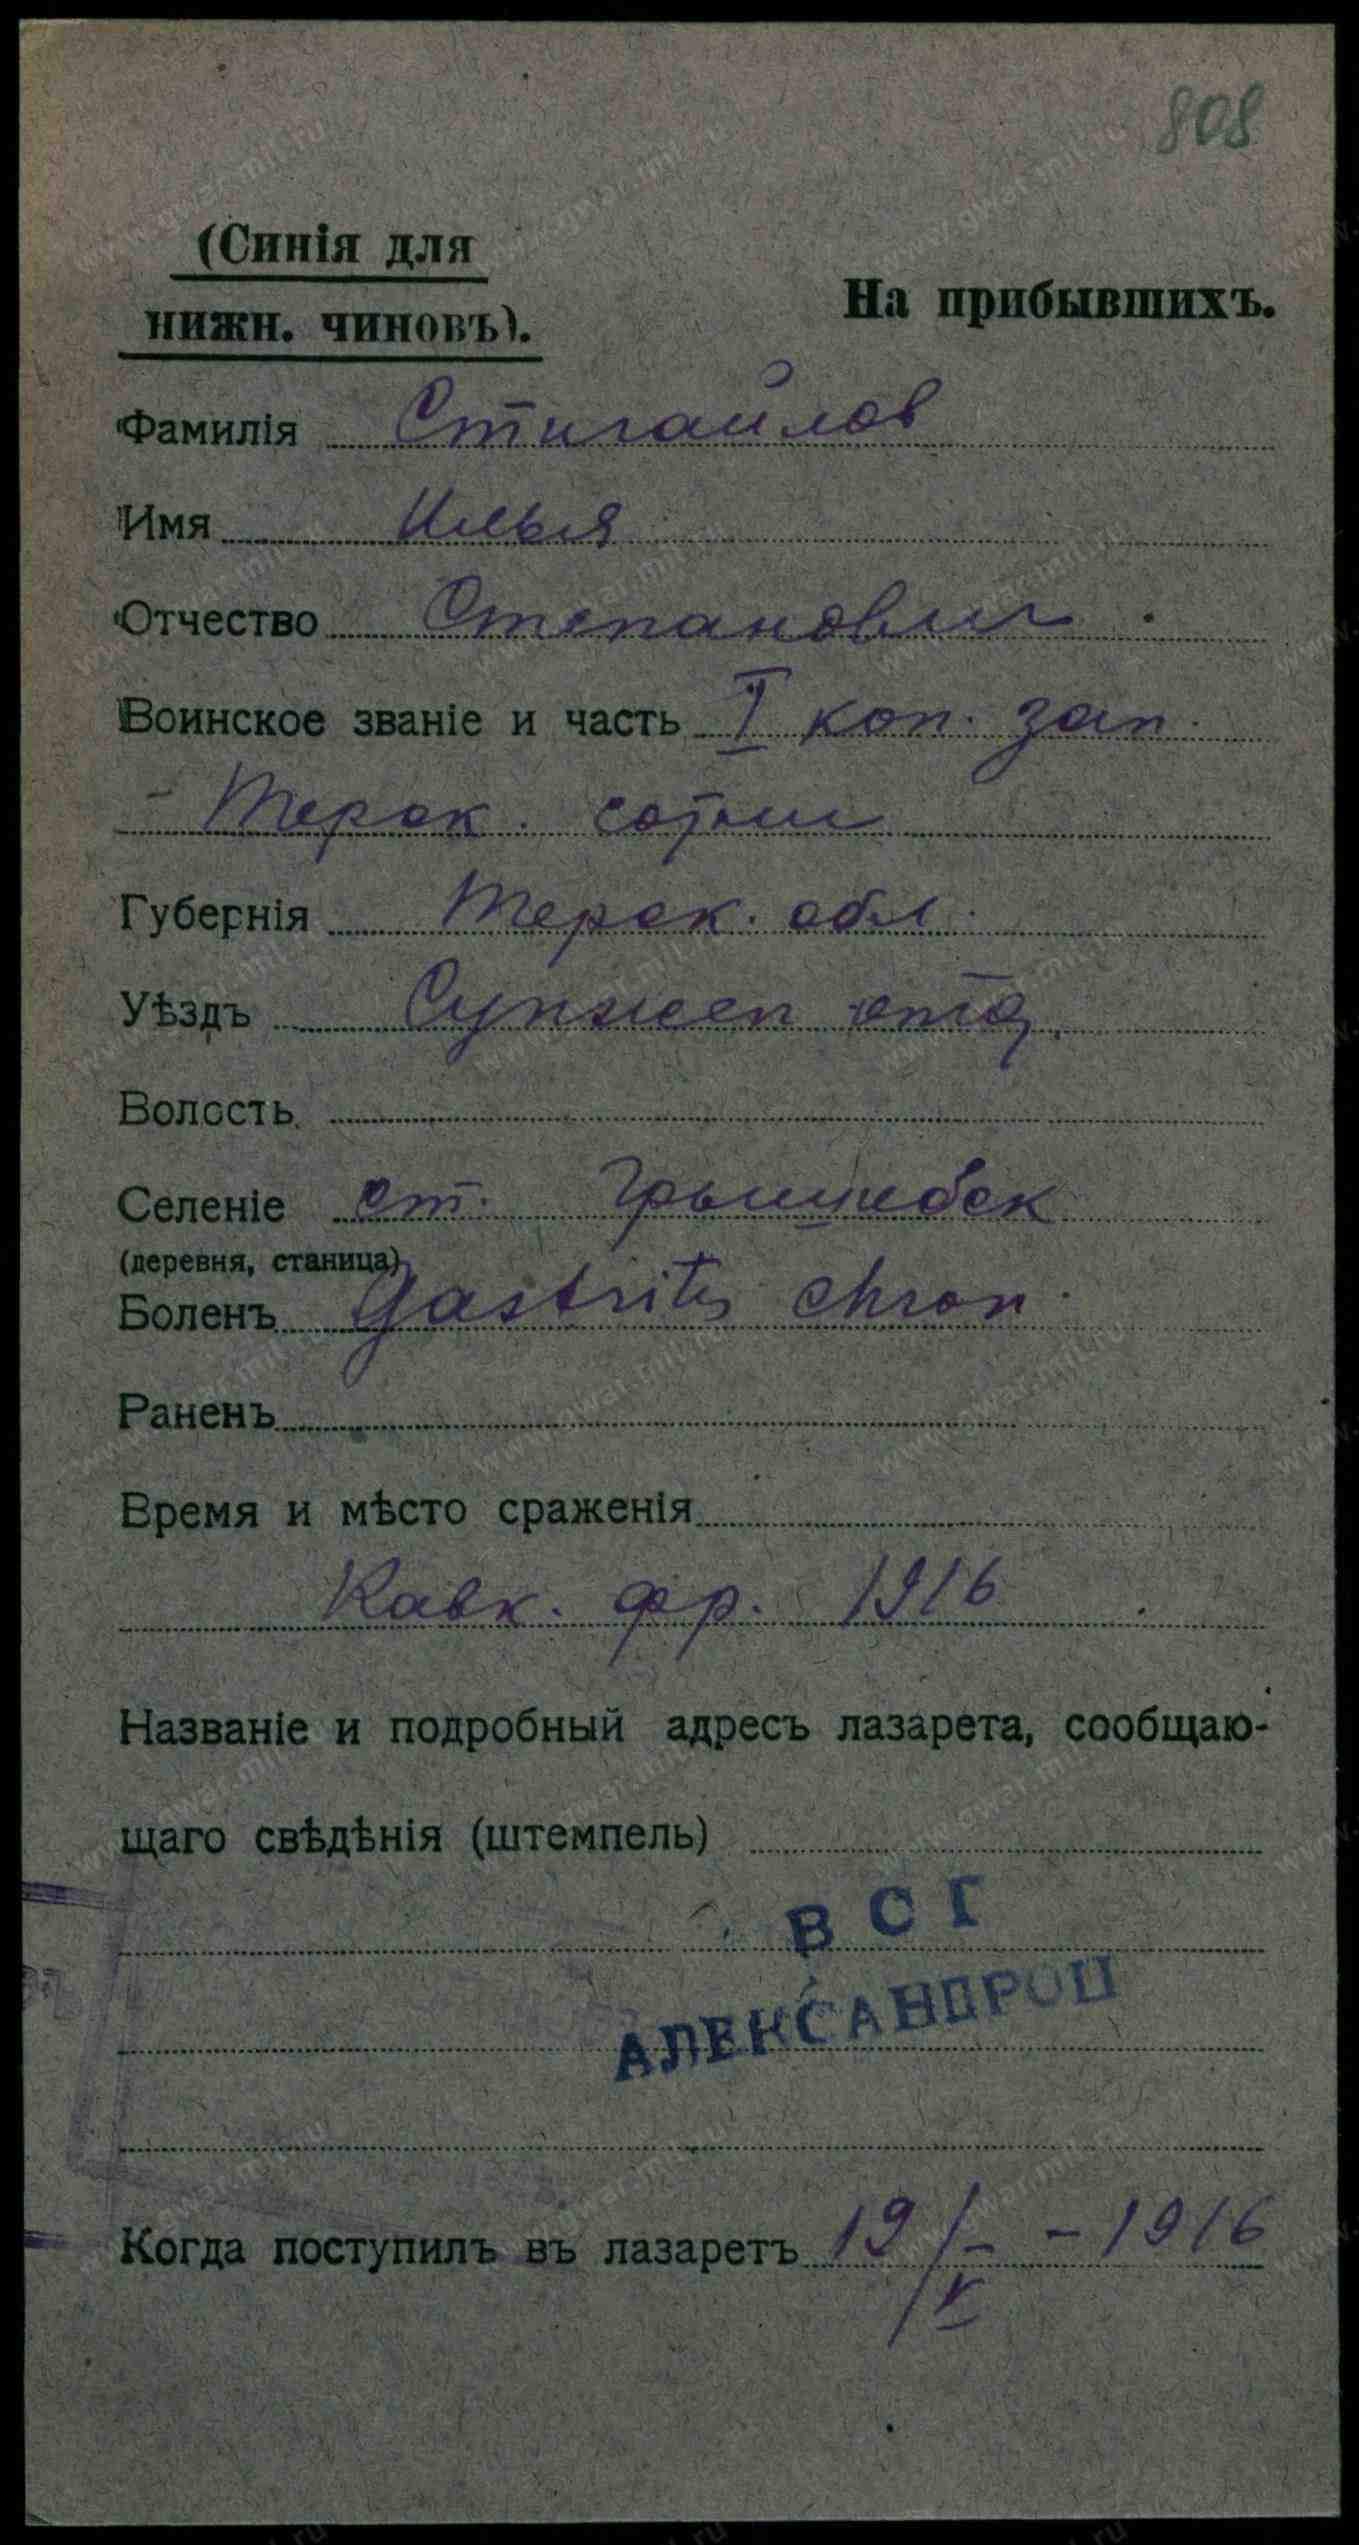 808
(Синія для
нижн. чиновъ).
На прибывшихъ.
Фамилія Стигайлов
Имя Илья
Отчество Степанович
Воинское званіе и часть I коп. зап.
Терск. сотни
Губернія Терск. обл.
Уѣздъ Сунжен отд.
Волость
Селеніе ст.
(деревня, станица)
Боленъ Gastritis chron.
Раненъ
Время и мѣсто сраженія
Кавк. фр. 1916
Названіе и подробный адресъ лазарета, сообщаю-
щаго свѣдѣнія (штемпель)
В С Г
АЛЕКСАНДРОП
Когда поступилъ въ лазаретъ 19/V - 1916